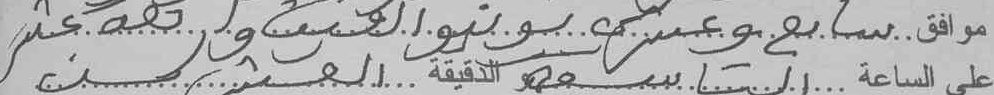 موافق سابع وعشرين يونيو ألفين وأربعة عشر
على الساعة التاسعة الدقيقة العشرين